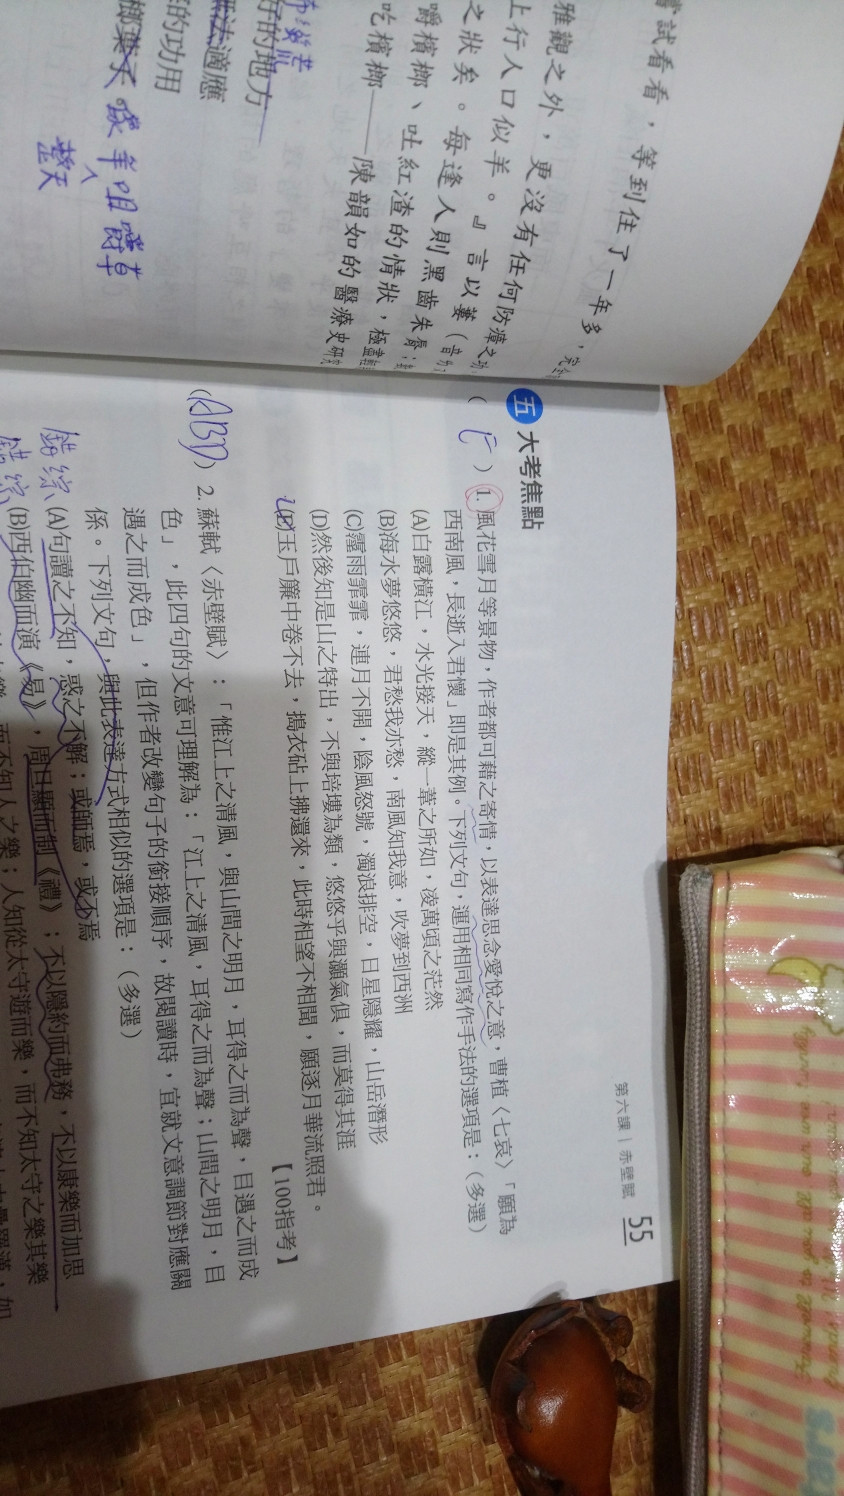 嘗試看看，等到住了一年多，
雅觀之外，更沒有任何防瘴之
上行人口似羊。』言以蔞（音
之狀矣。每逢人則黑齒朱脣；
嚼檳榔、吐紅渣的情狀，極盡
吃檳榔——陳韻如的醫療史研究
好的地方
無法適應
的功用
整天
第六課｜赤壁賦 55
五 大考焦點
（ E ）1. 風花雪月等景物，作者都可藉之寄情，以表達思念愛悅之意，曹植〈七哀〉「願為
西南風，長逝入君懷」即是其例。下列文句，運用相同寫作手法的選項是：（多選）
(A)白露橫江，水光接天，縱一葦之所如，凌萬頃之茫然
(B)海水夢悠悠，君愁我亦愁，南風知我意，吹夢到西洲
(C)霪雨霏霏，連月不開，陰風怒號，濁浪排空，日星隱耀，山岳潛形
(D)然後知是山之特出，不與培塿為類，悠悠乎與灝氣俱，而莫得其涯
(E)玉戶簾中卷不去，搗衣砧上拂還來，此時相望不相聞，願逐月華流照君。
【100指考】
（ABD）2. 蘇軾〈赤壁賦〉：「惟江上之清風，與山間之明月，耳得之而為聲，目遇之而成
色」，此四句的文意可理解為：「江上之清風，耳得之而為聲；山間之明月，目
遇之而成色」，但作者改變句子的銜接順序，故閱讀時，宜就文意調節對應關
係。下列文句，與此表達方式相似的選項是：（多選）
錯綜 (A)句讀之不知，惑之不解；或師焉，或不焉
錯綜 (B)西伯幽而演《易》，周旦顯而制《禮》；不以隱約而弗務，不以康樂而加思
而不知人之樂；人知從太守遊而樂，而不知太守之樂其樂